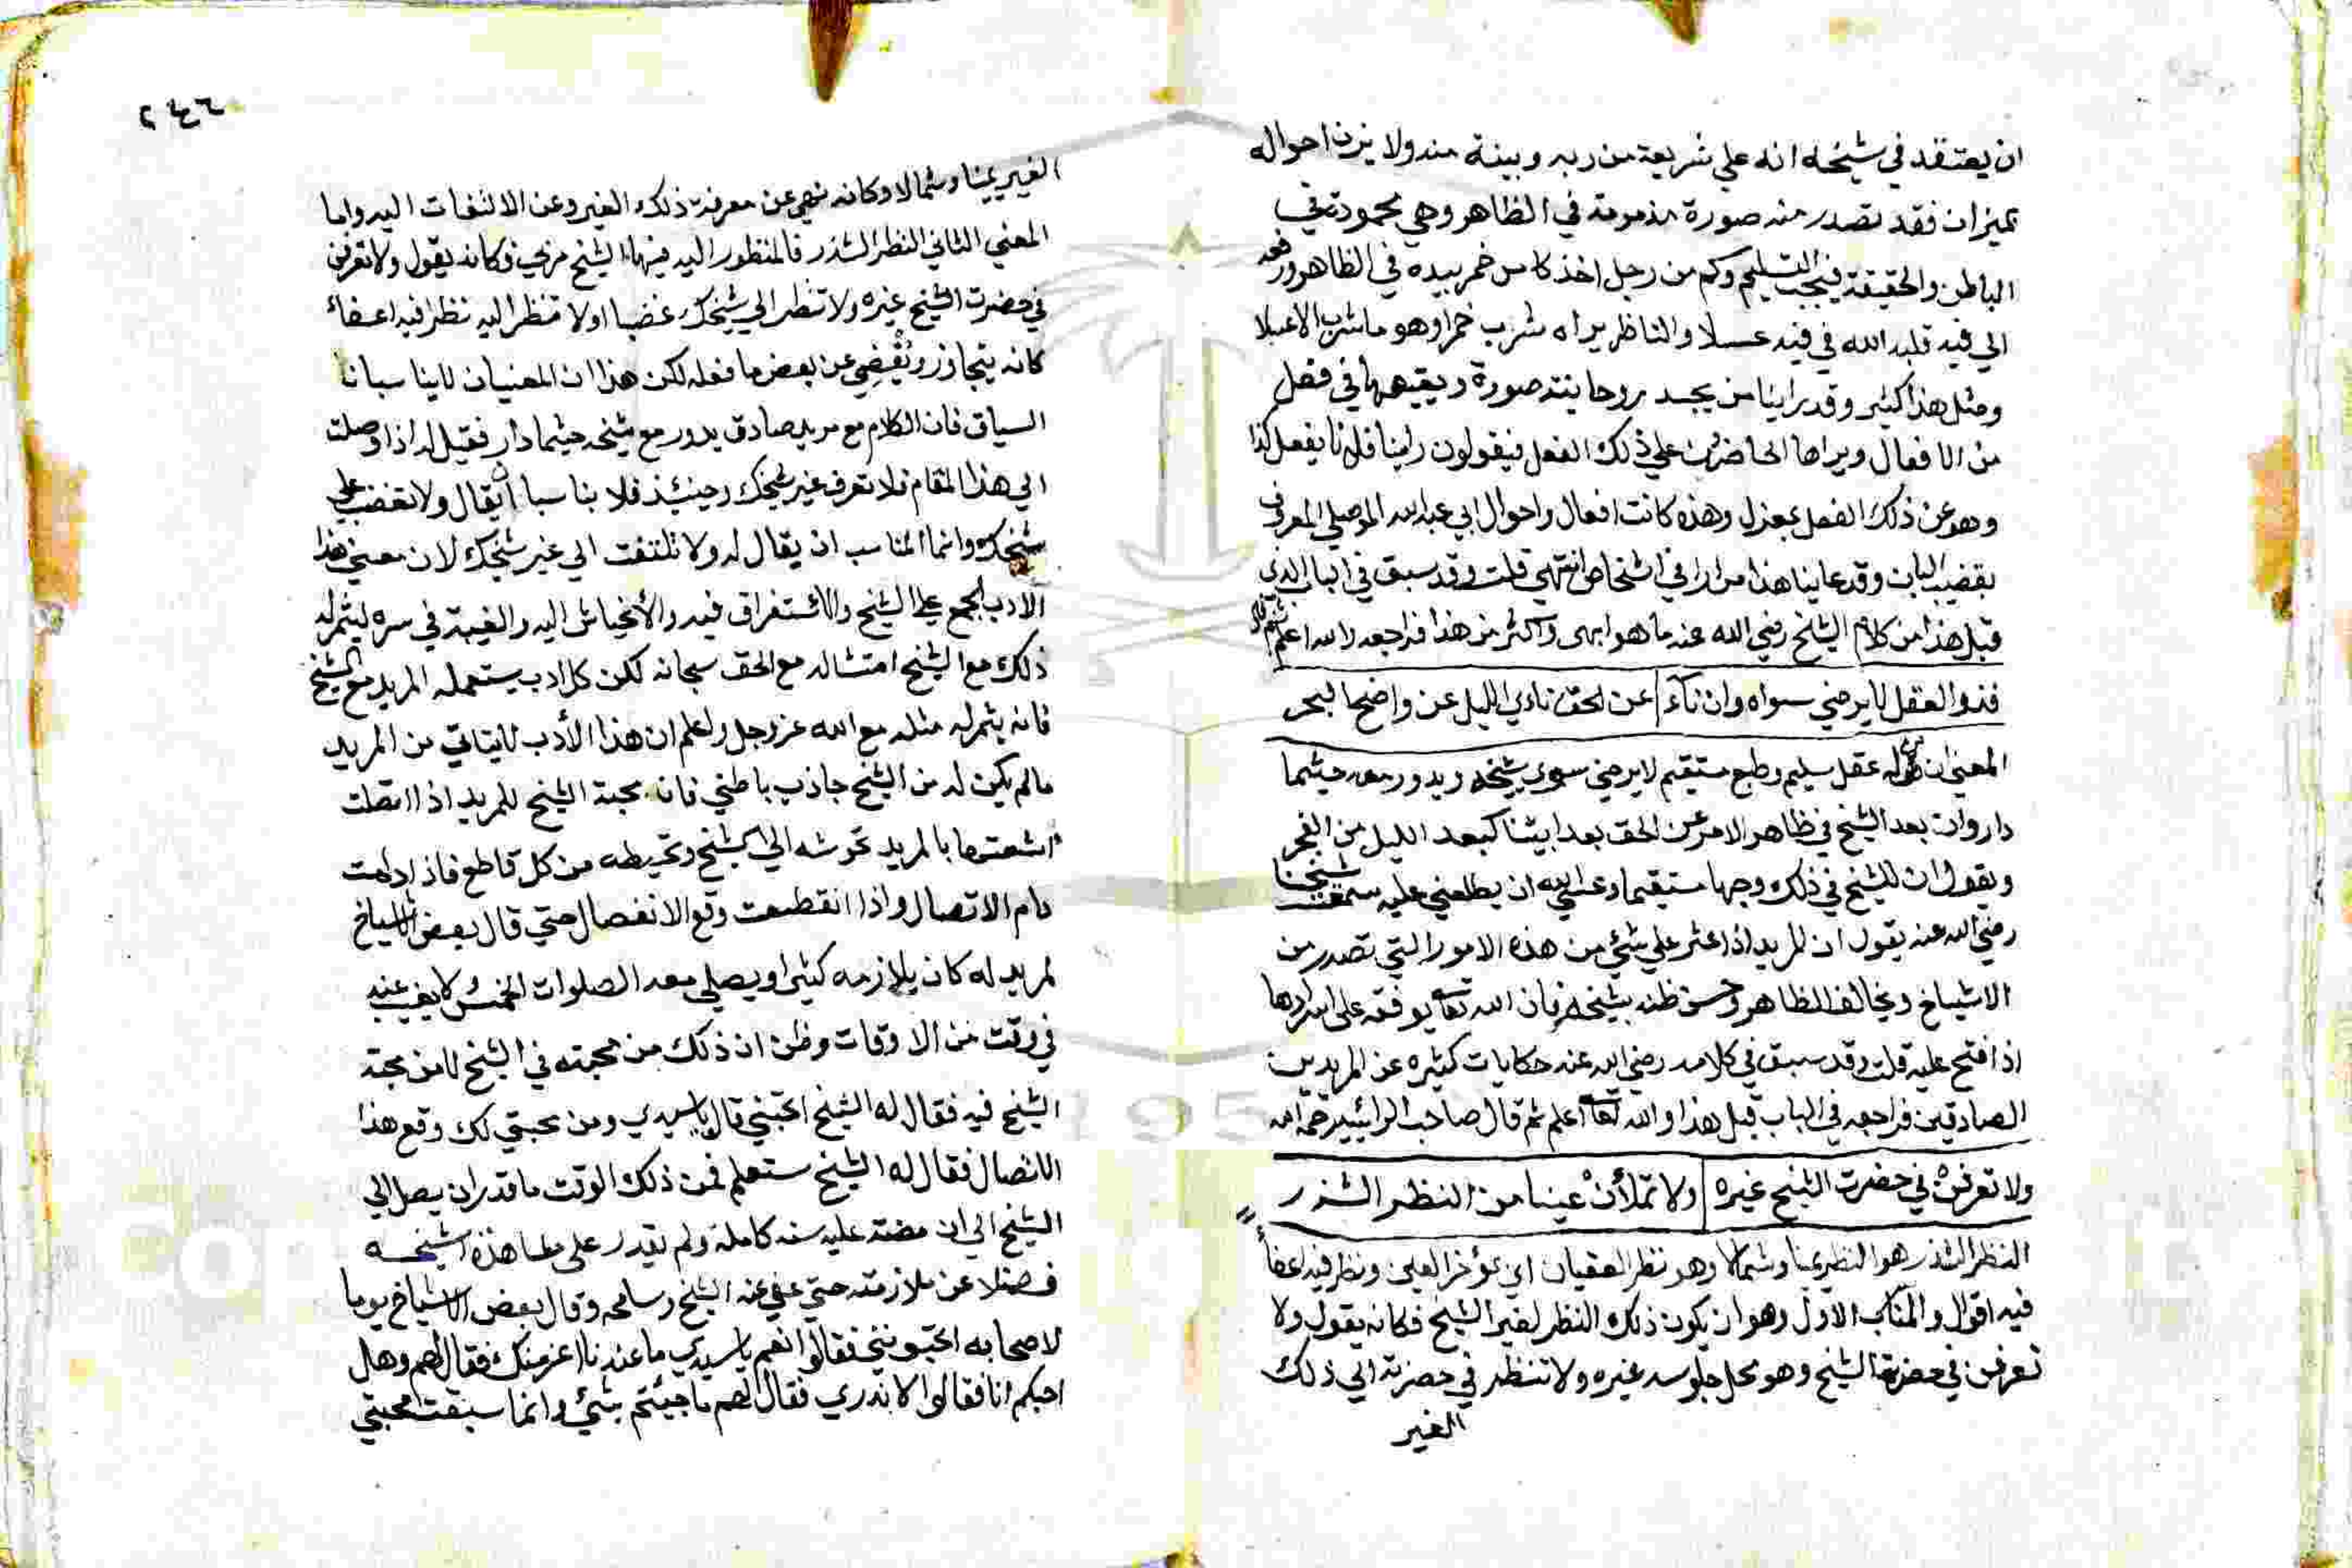 ان يعتقد في شيخه انه علي شريعة من ربه وبينة منه ولا يزن احواله
بميزان فقد تصدر منه صورة مذمومة في الظاهر وهي محمودة في
الباطن والحقيقة فيجب التسليم وكم من رجل اخذ كاس خمر بيده في الظاهر ورفعه
الي فيه قلبه الله في فيه عسلا والناظر يراه شرب خمرا وهو ما شرب الا عسلا
ومثل هذا كثير وقد راينا من يجسد روحانيته صورة ويقيمها في فعل
من الافعال ويراها الحاضرين علي ذلك الفعل فيقولون راينا فلانا يفعل كذا
وهو عن ذلك الفعل بمعزل وهذه كانت افعال واحوال ابي عبد الله الموصلي المعروف
بقضيب البان وقد عاينا هذا مرارا في اشخاص انتهي قلت وقد سبق في الباب الذي
قبل هذا من كلام الشيخ رضي الله عنه ما هو ابهى واكثر من هذا فراجعه والله اعلم ثم قال
فذو العقل لا يرضي سواه وان نآء عن الحق ناءي الليل عن واضح الفجر
المعني ان من له عقل سليم وطبع مستقيم لا يرضي سوي شيخه ويدور معه حيثما
دار وان بعد الشيخ في ظاهر الامر عن الحق بعدا بينا كبعد الليل من الفجر
ويقول ان للشيخ في ذلك وجها مستقيما وعسي الله ان يطلعني عليه سمعت شيخنا
رضي الله عنه يقول ان المريد اذا عثر علي شئ من هذه الامور التي تصدر من
الاشياخ ويخالف الظاهر وحسن ظنه بشيخه فان الله تعالي يوفقه على اسرارها
اذا فتح عليه قلت وقد سبق في كلامه رضي الله عنه حكايات كثيره عن المريدين
الصادقين فراجعه في الباب قبل هذا والله تعالي اعلم ثم قال صاحب الرائية رحمه الله
ولا تعرفن في حضرت الشيخ غيره ولا تملأن عينا من النظر الشزر
النظر الشذر هو النظر يمينا وشمالا وهو نظر الغضبان اي بمؤخر العين ونظر فيه اعفاء
فيه اقوال والمناسب الاول وهو ان يكون ذلك النظر لغير الشيخ فكانه يقول ولا
تعرفن في حضرة الشيخ وهو محل جلوسه غيره ولا تنظر في حضرته الي ذلك
الغير
٢٤٦
الغير يمينا وشمالا وكانه نهي عن معرفة ذلك الغير وعن الالتفات اليه واما
المعني الثاني النظر الشذر فالمنظور اليه فيهما الشيخ مرجي فكانه يقول ولا تعرفن
في حضرت الشيخ غيره ولا تنظر الي شيخك غضبا اولا تنظر اليه نظرا فيه اعفاء
كانه يتجاوز ويغضي عن بعض ما فعله لكن هذان المعنيان لا يناسبانا
السياق فان الكلام مع مريد صادق يدور مع شيخه حيثما دار فقيل له اذا وصلت
الي هذا المقام فلا تعرف غير شيخك وحينئذ فلا يناسب ان يقال ولا تغضب علي
شيخك وانما المناسب ان يقال له ولا تلتفت الي غير شيخك لان معني هذا
الادب الجمع علي الشيخ والاستغراق فيه والانحياش اليه والغيبة في سره ليثمر له
ذلك مع الشيخ امتثاله مع الحق سبحانه لكن كل ادب يستعمله المريد مع الشيخ
فانه يثمر له مثله مع الله عز وجل واعلم ان هذا الأدب لا يتاتي من المريد
مالم يكن له من الشيخ جاذب باطني فان محبة الشيخ للمريد اذا اتصلت
اشعتها بالمريد تحوشه الي الشيخ وتحيطه من كل قاطع فاذا دامت
دام الاتصال واذا انقطعت وقع الانفصال حتي قال بعض الاشياخ
لمريد له كان يلازمه كثيرا ويصلي معه الصلوات الخمس لا يغيب عنه
في وقت من الاوقات وظن ان ذلك من محبته في الشيخ لا من محبة
الشيخ فيه فقال له الشيخ اتحبني قال يا سيدي ومن محبتي لك وقع هذا
الاتصال فقال له الشيخ ستعلم فمن ذلك الوقت ما قدر ان يصل الي
الشيخ الي ان مضت عليه سنه كاملة ولم يقدر على مشاهدة شيخه
فضلا عن ملازمته حتي عفي عنه الشيخ وسامحه وقال بعض الاشياخ يوما
لاصحابه اتحبونني فقالوا نعم يا سيدي ما عندنا اعز منك فقال لهم وهل
احبكم انا فقالوا لا ندري فقال لهم ما جيئتم بشئ وانما سبقت محبتي